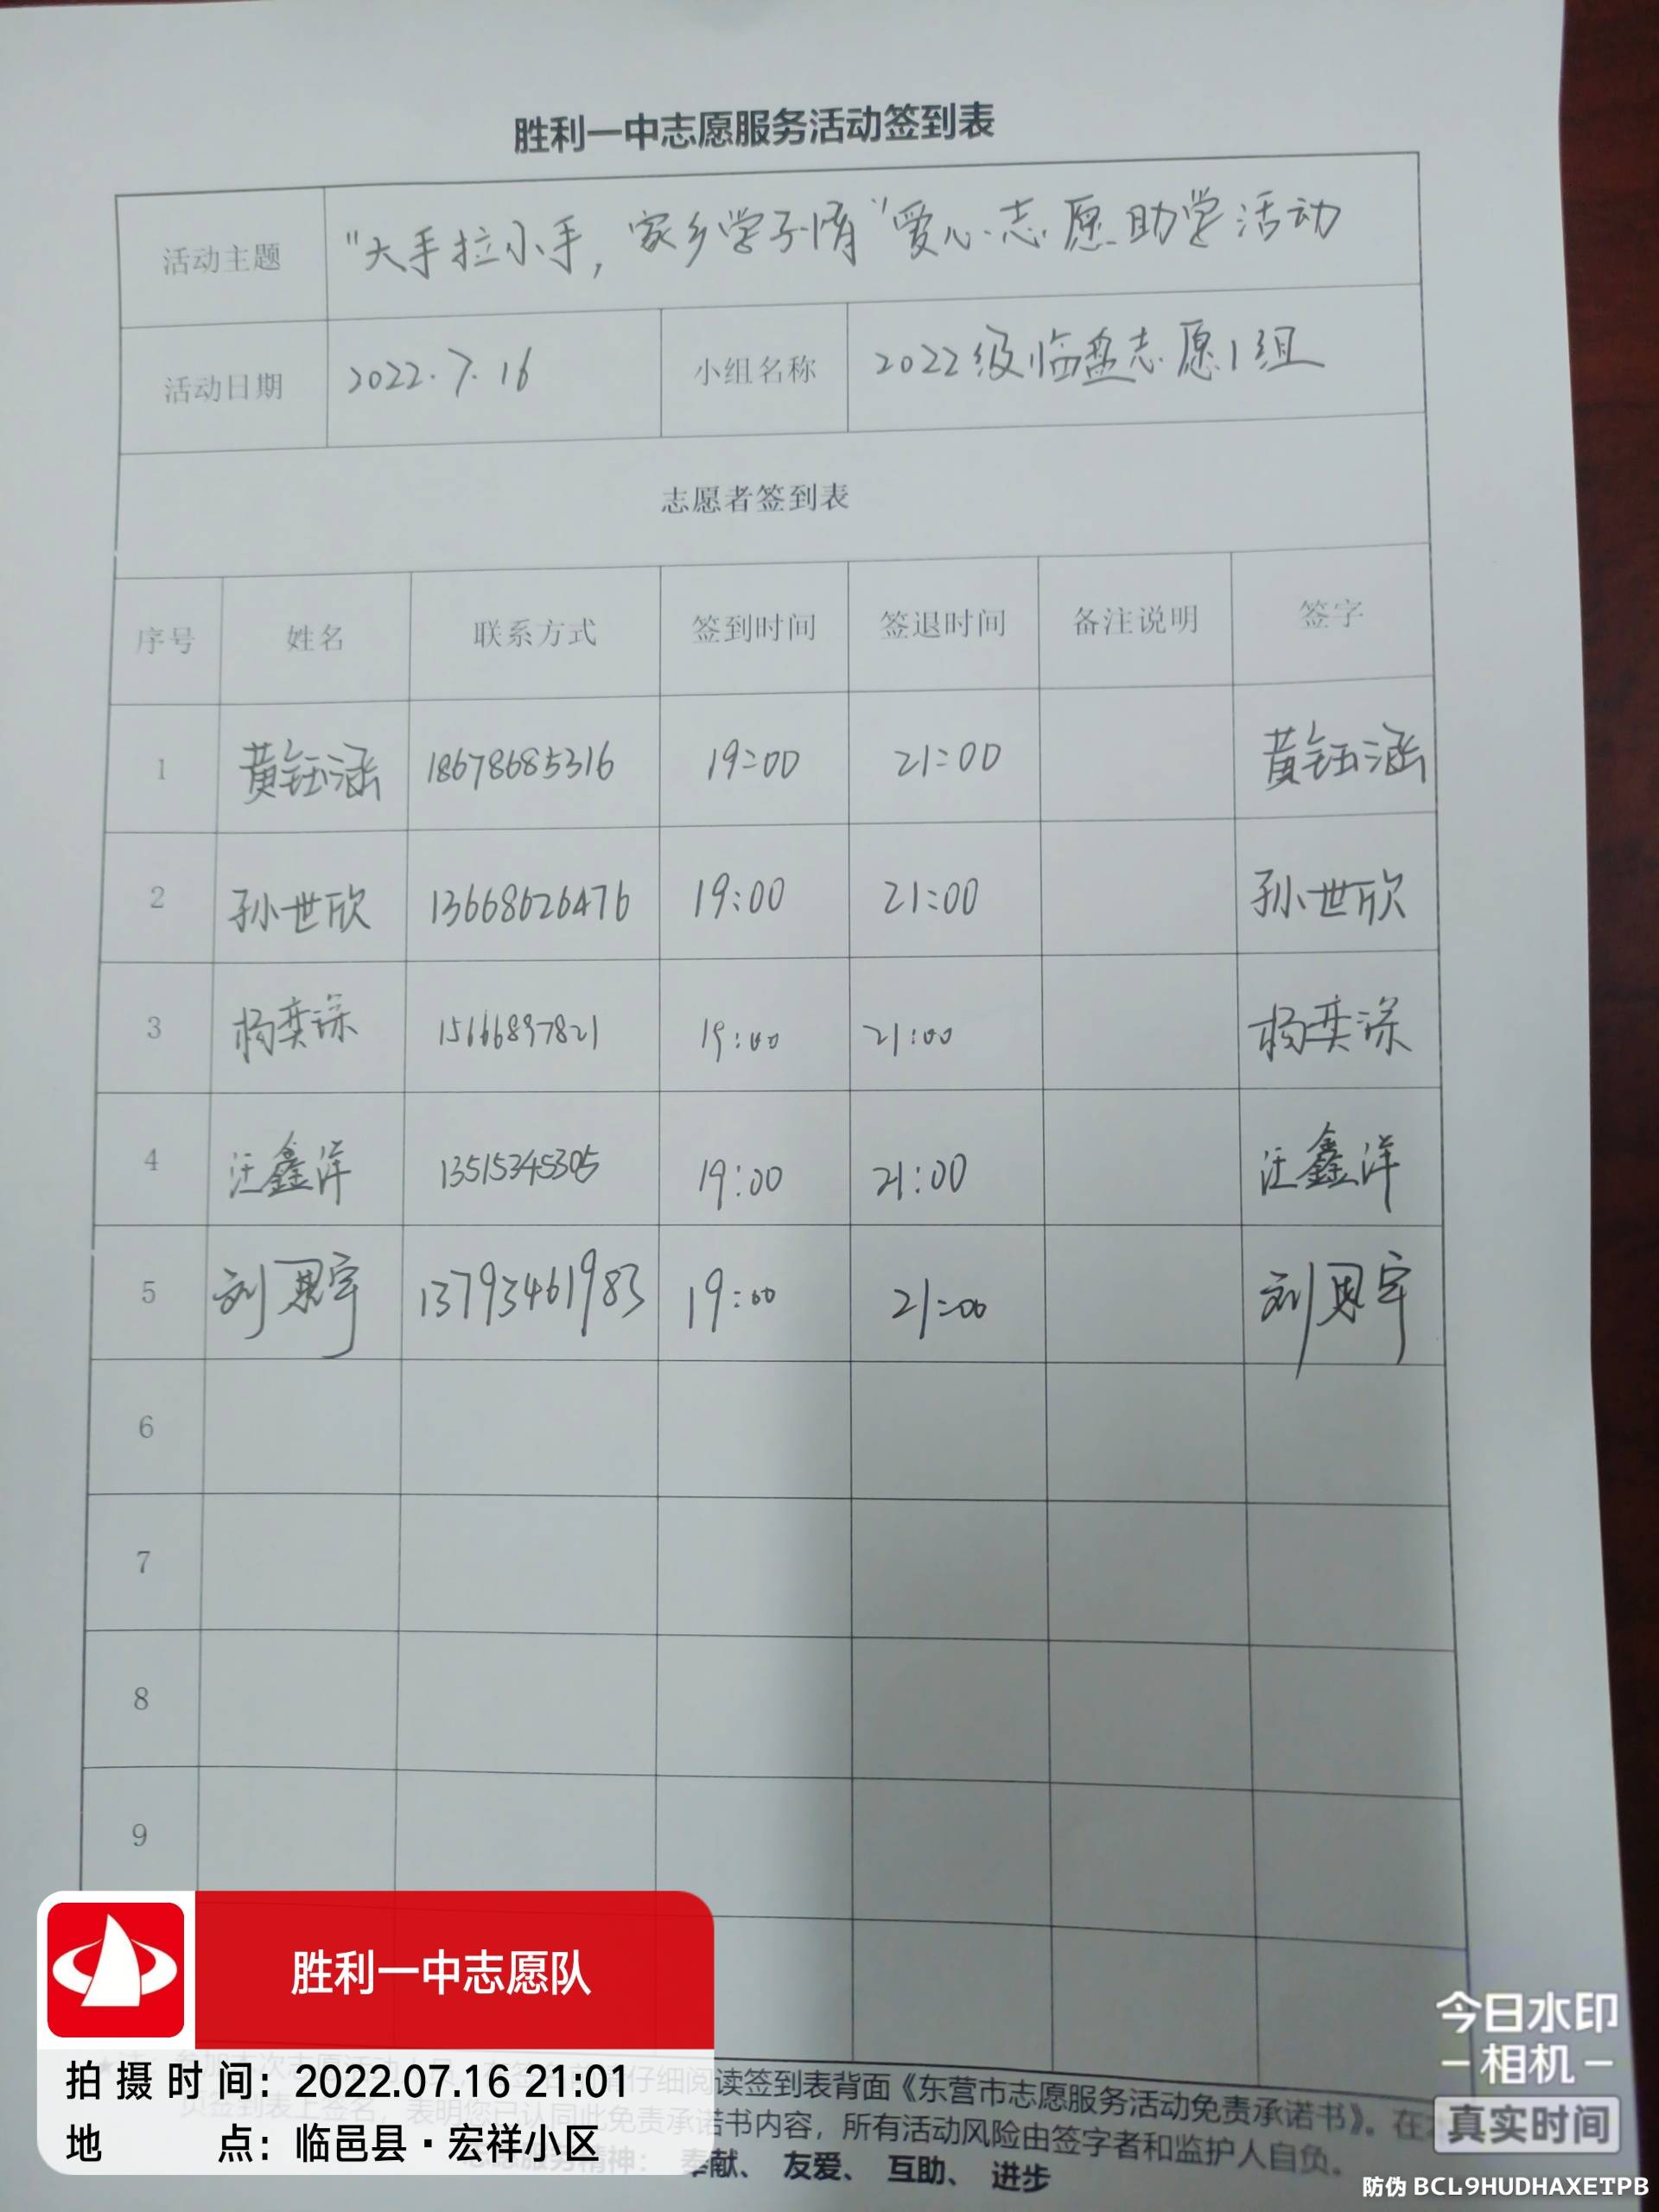 胜利一中志愿服务活动签到表
活动主题 "大手拉小手，家乡学子情"爱心志愿助学活动
活动日期 2022.7.16 小组名称 2022级临盘志愿1组
志愿者签到表
序号 姓名 联系方式 签到时间 签退时间 备注说明 签字
1 黄钰涵 18678685316 19:00 21:00 黄钰涵
2 孙世欣 13668626476 19:00 21:00 孙世欣
3 杨奕 15666897821 19:00 21:00 杨奕
4 汪鑫洋 13515345305 19:00 21:00 汪鑫洋
5 刘恩宇 13793461983 19:00 21:00 刘恩宇
6
7
8
9
胜利一中志愿队
拍摄时间：2022.07.16 21:01
地点：临邑县·宏祥小区
仔细阅读签到表背面《东营市志愿服务活动免责承诺书》。在
页签到表上签名，表明您已认同此免责承诺书内容，所有活动风险由签字者和监护人自负。
志愿服务精神：奉献、友爱、互助、进步
今日水印
相机
真实时间
防伪 BCL9HUDHAXETPB